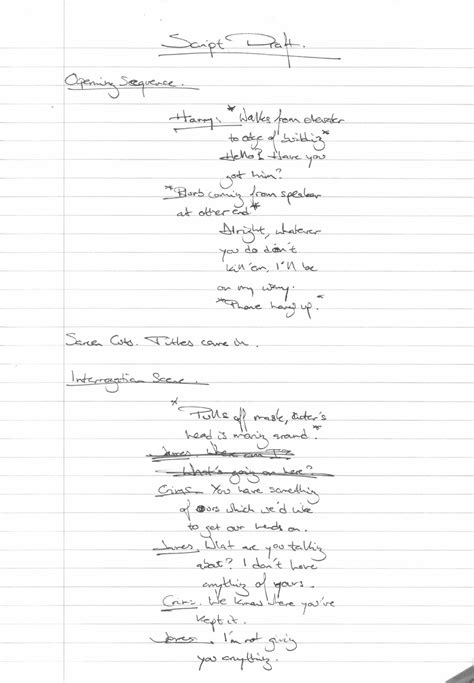 Script Draft.
Opening Sequence.
Harry: *Walks from elevator
to edge of building*
Hello? Have you
got him?
*Blurb coming from speaker
at other end*
Alright, whatever
you do don't
kill 'em, I'll be
on my way.
*Phone hang up.*
Screen Cuts. Titles come in.
Interrogation Scene.
*Pulls off mask,
head is moving around.*
James. Where am I?
What's going on here?
You have something
of ours which we'd like
to get our hands on.
James. What are you talking
about? I don't have
anything of yours.
We know where you've
kept it.
James. I'm not giving
you anything.